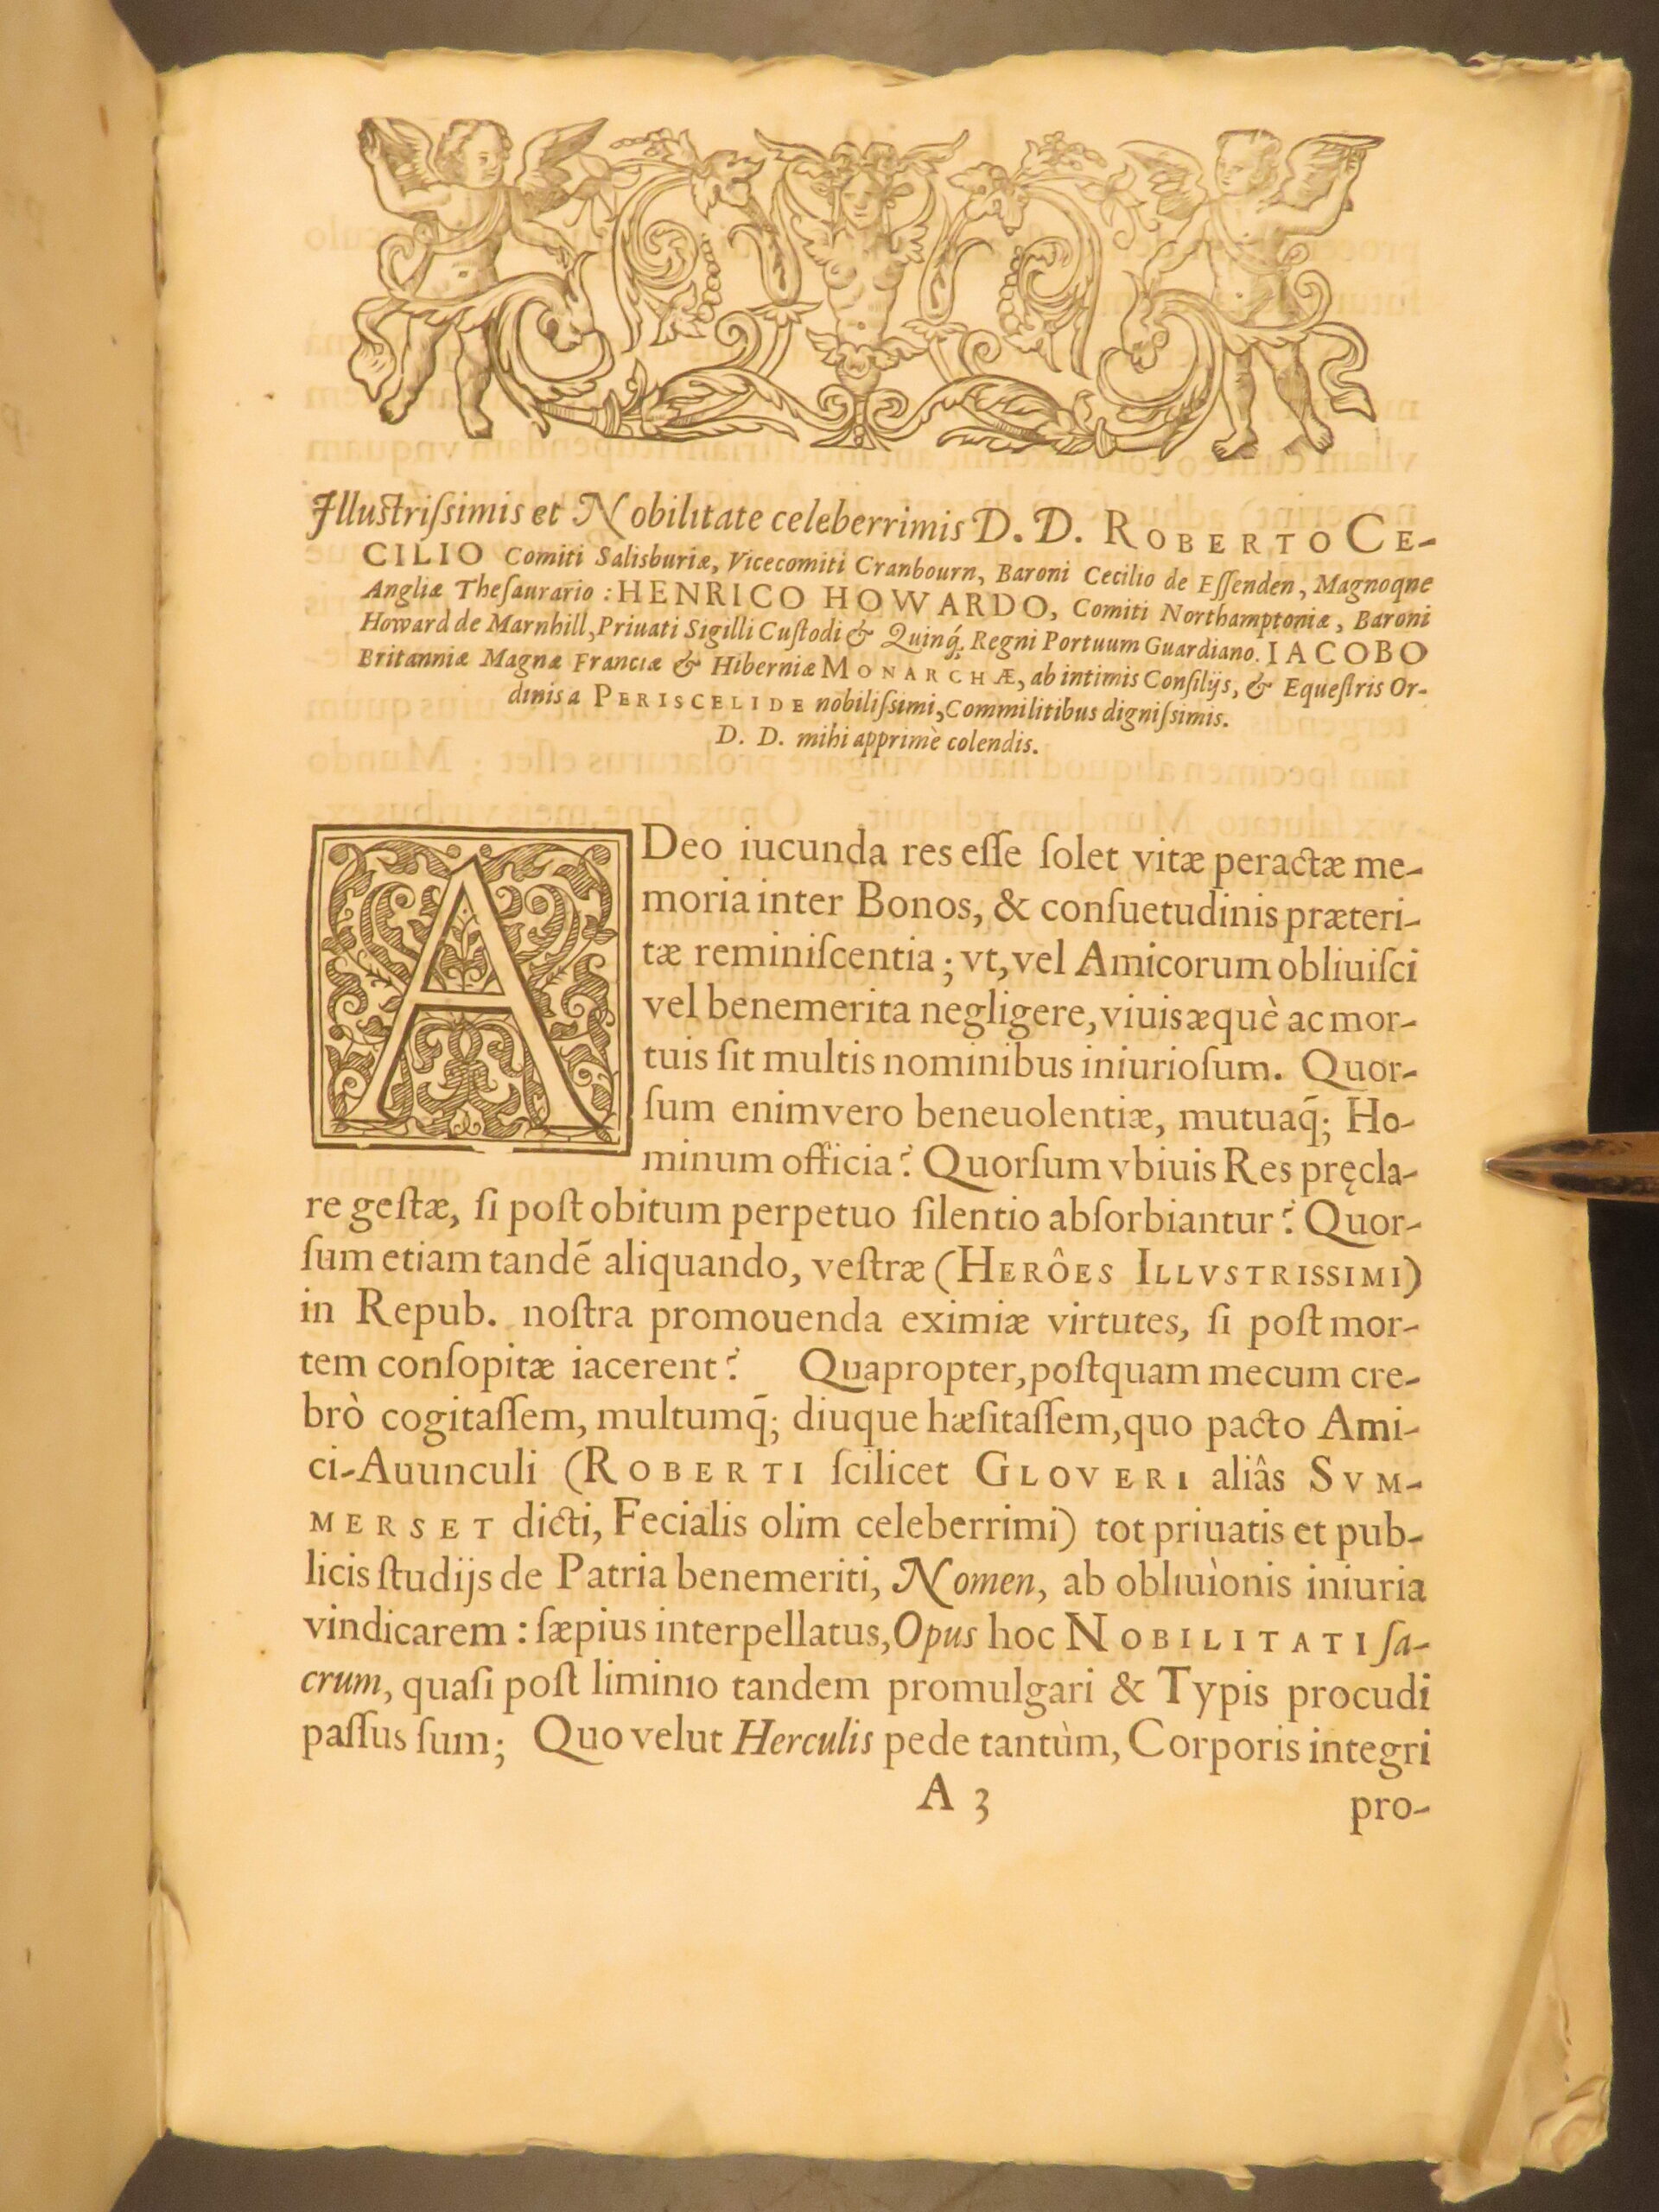 Illustriſsimis et Nobilitate celeberrimis D. D. ROBERTO CE-
CILIO Comiti Salisburiæ, Vicecomiti Cranbourn, Baroni Cecilio de Eſſenden, Magnoqne
Angliæ Theſaurario : HENRICO HOWARDO, Comiti Northamptoniæ, Baroni
Howard de Marnhill, Priuati Sigilli Cuſtodi & Quinq́; Regni Portuum Guardiano. IACOBO
Britanniæ Magnæ Franciæ & Hiberniæ MONARCHÆ, ab intimis Conſilijs, & Equeſtris Or-
dinis a PERISCELIDE nobiliſsimi, Commilitibus digniſsimis.
D. D. mihi apprimè colendis.
ADeo iucunda res eſſe ſolet vitæ peractæ me-
moria inter Bonos, & conſuetudinis præteri-
tæ reminiſcentia ; vt, vel Amicorum obliuiſci
vel benemerita negligere, viuis æquè ac mor-
tuis ſit multis nominibus iniurioſum. Quor-
ſum enimvero beneuolentiæ, mutuaq̄; Ho-
minum officia? Quorſum vbiuis Res pręcla-
re geſtæ, ſi poſt obitum perpetuo ſilentio abſorbiantur? Quor-
ſum etiam tandē aliquando, veſtræ (HERÔES ILLVSTRISSIMI)
in Repub. noſtra promouenda eximiæ virtutes, ſi poſt mor-
tem conſopitæ iacerent? Quapropter, poſtquam mecum cre-
brò cogitaſſem, multumq̄; diuque hæſitaſſem, quo pacto Ami-
ci-Auunculi (ROBERTI ſcilicet GLOVERI aliâs SVM-
MERSET dicti, Fecialis olim celeberrimi) tot priuatis et pub-
licis ſtudijs de Patria benemeriti, Nomen, ab obliuìonis iniuria
vindicarem : ſæpius interpellatus, Opus hoc NOBILITATI ſa-
crum, quaſi poſt liminio tandem promulgari & Typis procudi
paſſus ſum; Quo velut Herculis pede tantùm, Corporis integri
A 3
pro-